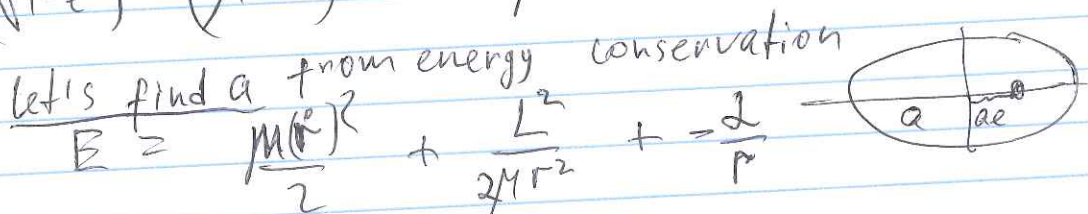 let's find a from energy conservation
E = μ(ṙ)²/2 + L²/2μr² + -α/r
a ae